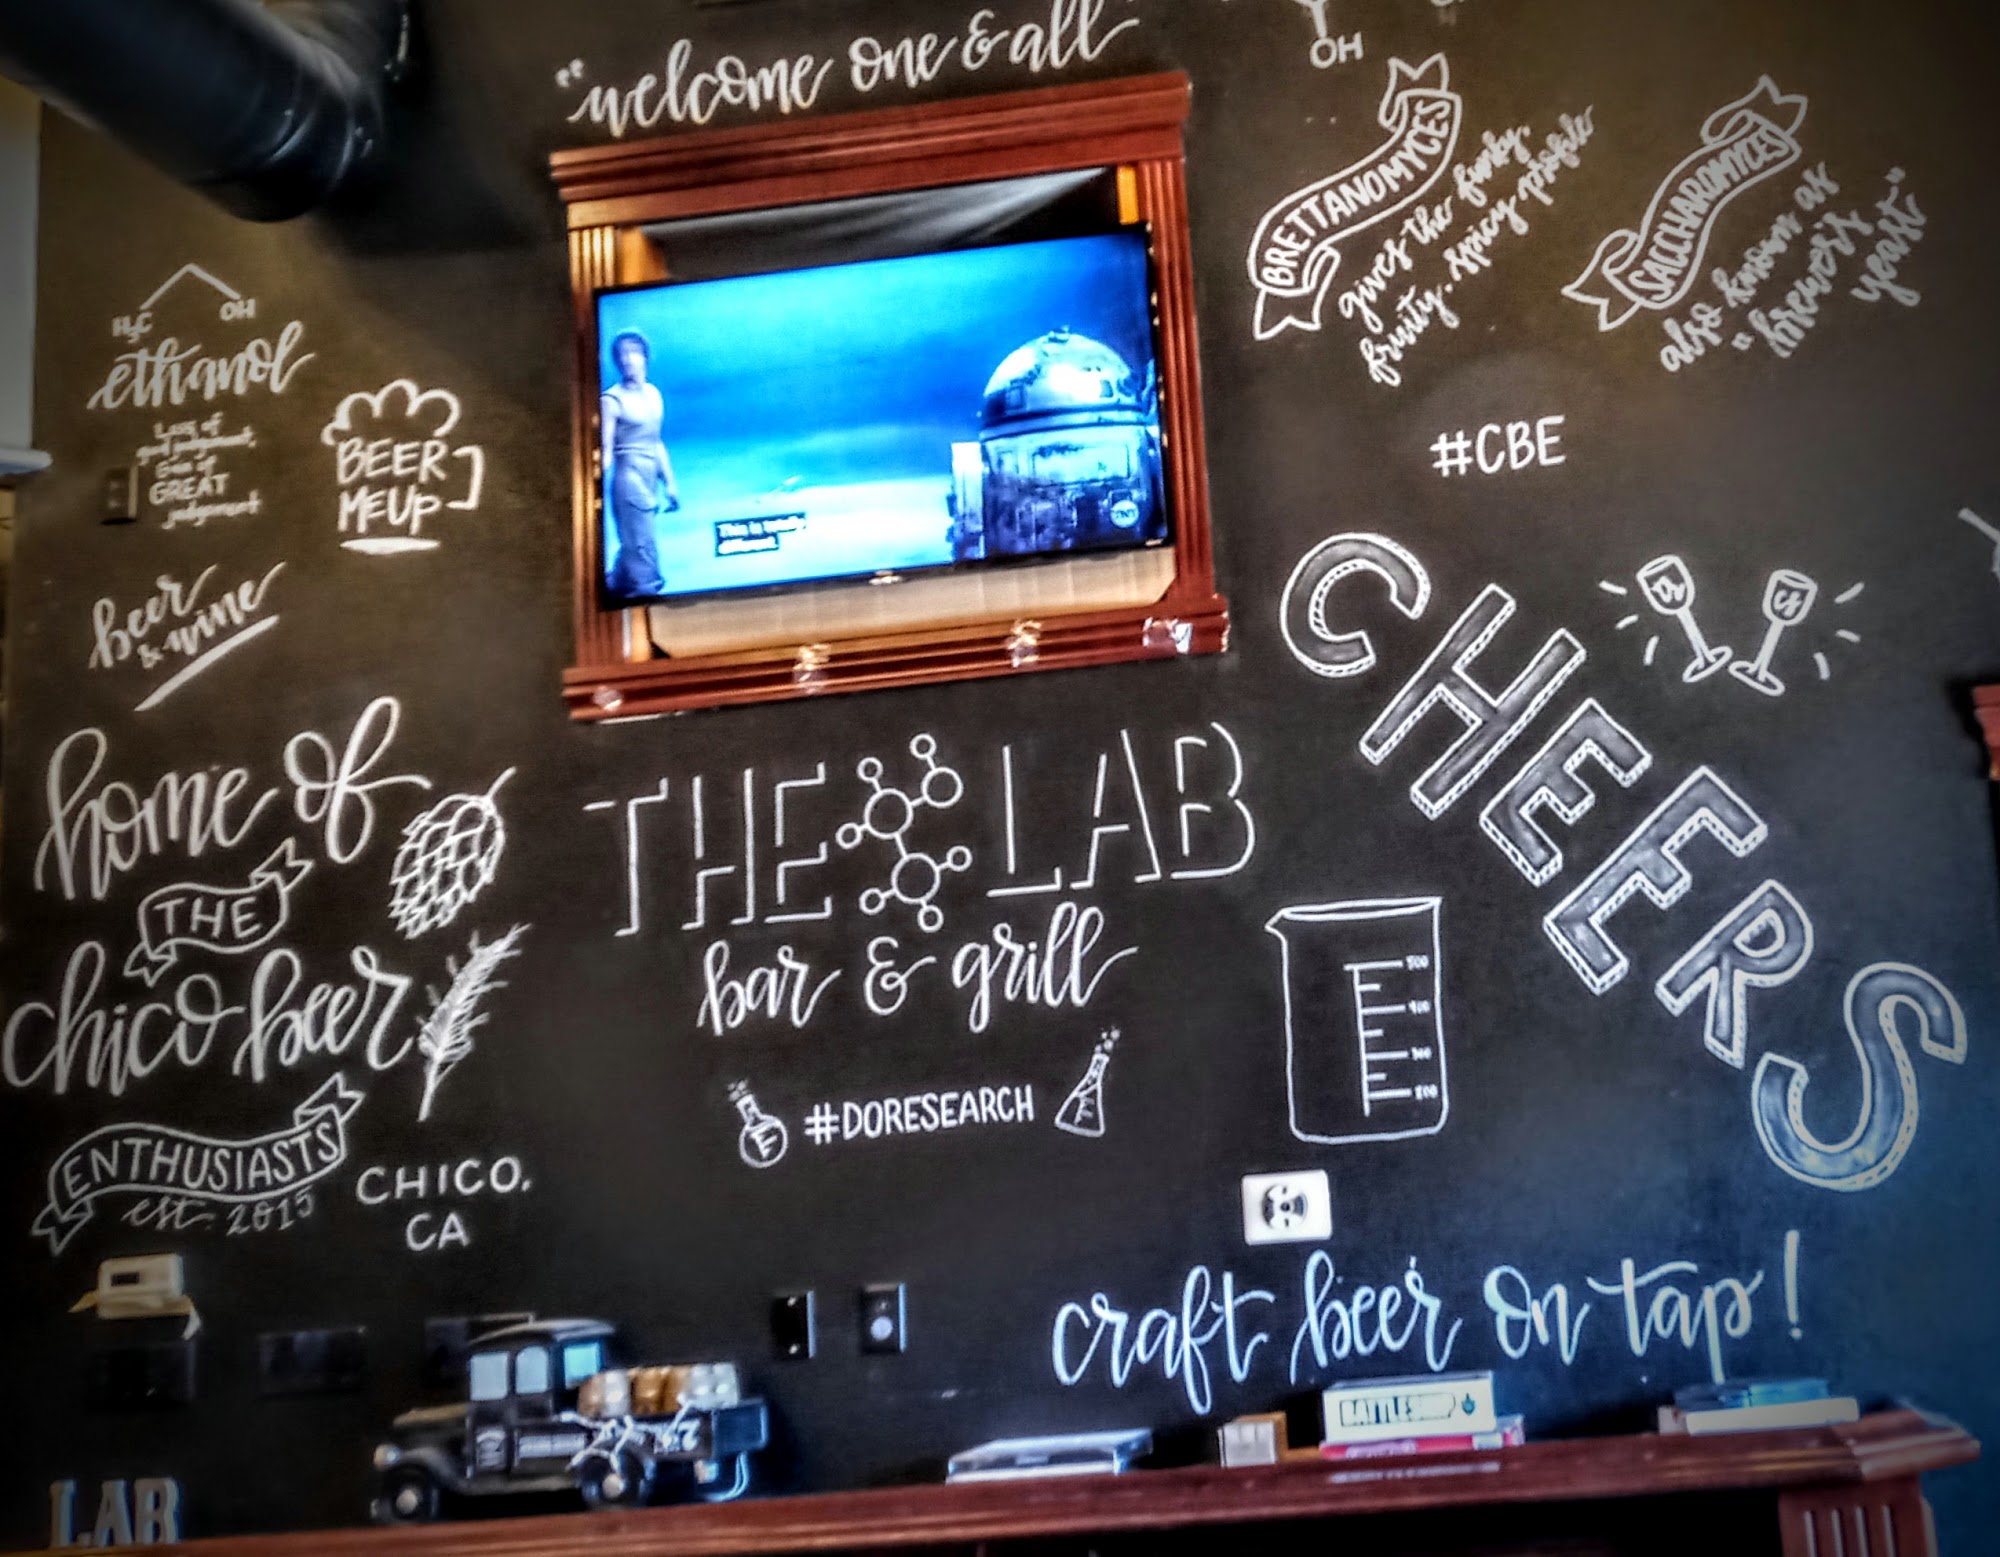 "welcome one & all
OH
BRETTANOMYCES
gives the funky,
fruity, spicy profile
SACCHAROMYCES
also known as
"brewer's
yeast"
#CBE
H3C OH
ethanol
Loss of
good judgement,
Gain of
GREAT
judgement
BEER
ME UP
beer
& wine
This is totally
different.
TNT
CHEERS
home of
THE
chico beer
ENTHUSIASTS
est. 2015
CHICO,
CA
THE LAB
bar & grill
#DORESEARCH
500
400
300
craft beer on tap!
LAB